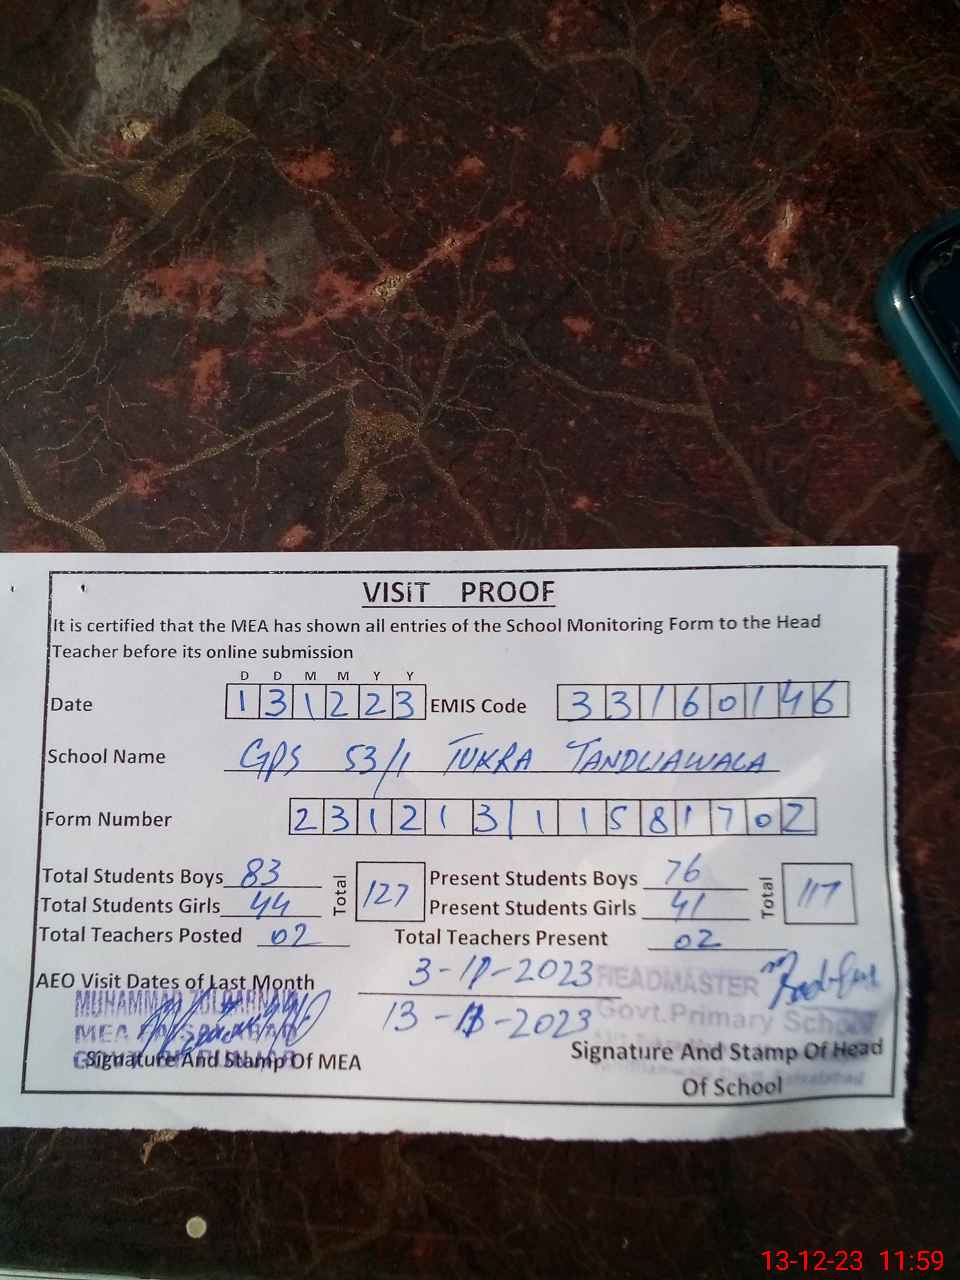 VISIT PROOF
It is certified that the MEA has shown all entries of the School Monitoring Form to the Head
Teacher before its online submission
D D M M Y Y
Date 131223 EMIS Code 33160146
School Name GPS 53/1 TUKRA TANDLIAWALA
Form Number 23121311581702
Total Students Boys 83 Total 127 Present Students Boys 76 Total 117
Total Students Girls 44 Present Students Girls 41
Total Teachers Posted 02 Total Teachers Present 02
AEO Visit Dates of Last Month 3-11-2023 HEADMASTER
MUHAMMAD ZULQARNAIN 13 - -2023 Govt.Primary School
MEA FAISALABAD
Signature And Stamp Of MEA Signature And Stamp Of Head
Of School
13-12-23 11:59